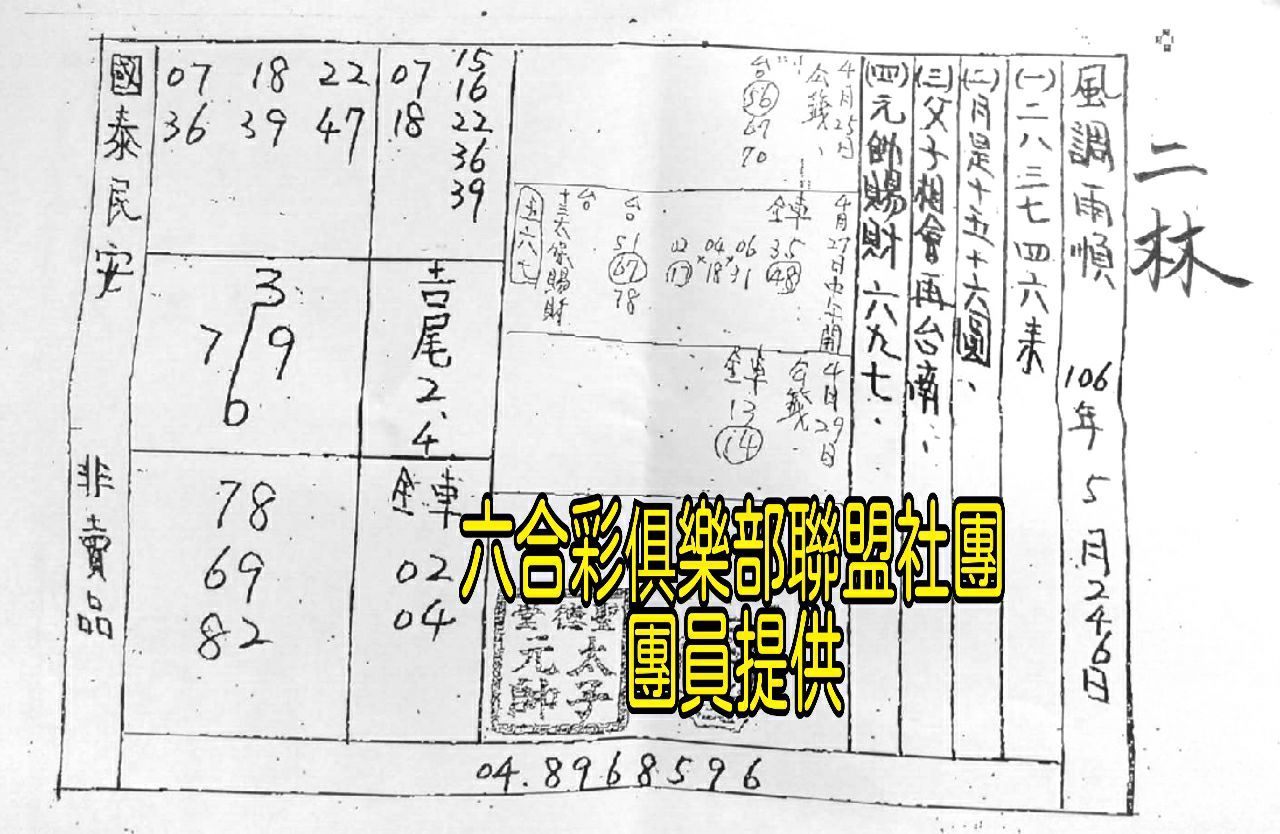 二林
風調雨順 106年5月246日
(一)二八三七四六来
(二)月是十五十六圓、
(三)父子相會再台南、
(四)元帥賜財六九七、
4月25日
公籤、
台
56
67
70
4月27日中午開
金車
35
48
02 04 06
17 18 31
台
51
67
78
台
十三太保賜財
五六七
4月29日
公籤
金車
13
14
07 15
16
18 22
36
39
07 18 22
36 39 47
吉尾2.4
3
7 9
6
金車
02
04
78
69
82
國泰民安 非賣品
聖德堂
太子元帥
04.8968596
六合彩俱樂部聯盟社團
團員提供